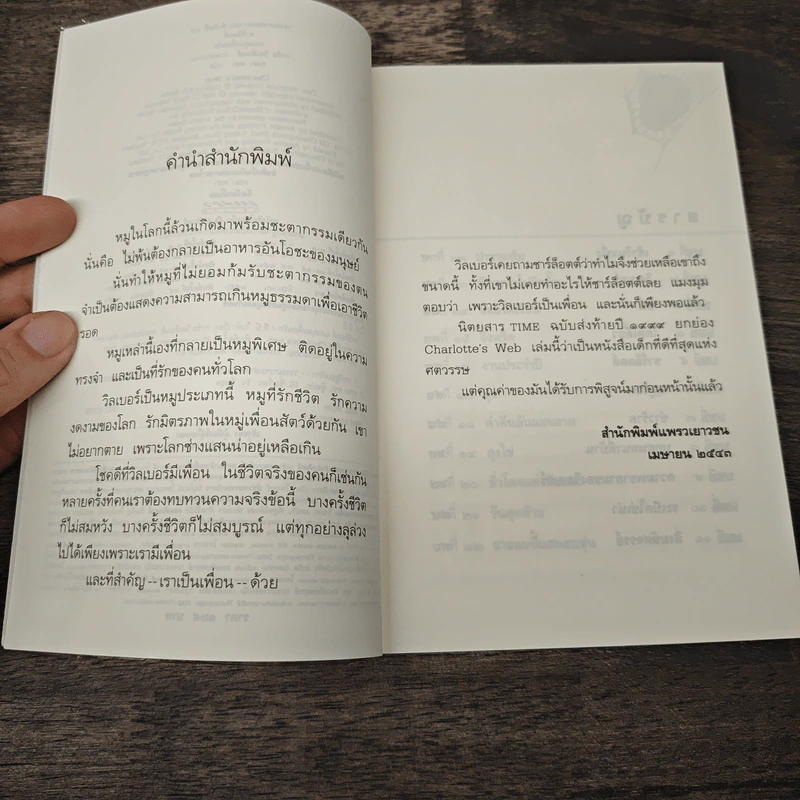 คำนำสำนักพิมพ์
หมูในโลกนี้ล้วนเกิดมาพร้อมชะตากรรมเดียวกัน
นั่นคือ ไม่พ้นต้องกลายเป็นอาหารอันโอชะของมนุษย์
นั่นทำให้หมูที่ไม่ยอมก้มรับชะตากรรมของตน
จำเป็นต้องแสดงความสามารถเกินหมูธรรมดาเพื่อเอาชีวิต
รอด
หมูเหล่านี้เองที่กลายเป็นหมูพิเศษ ติดอยู่ในความ
ทรงจำ และเป็นที่รักของคนทั่วโลก
วิลเบอร์เป็นหมูประเภทนี้ หมูที่รักชีวิต รักความ
งดงามของโลก รักมิตรภาพในหมู่เพื่อนสัตว์ด้วยกัน เขา
ไม่อยากตาย เพราะโลกช่างแสนน่าอยู่เหลือเกิน
โชคดีที่วิลเบอร์มีเพื่อน ในชีวิตจริงของคนก็เช่นกัน
หลายครั้งที่คนเราต้องทบทวนความจริงข้อนี้ บางครั้งชีวิต
ก็ไม่สมหวัง บางครั้งชีวิตก็ไม่สมบูรณ์ แต่ทุกอย่างลุล่วง
ไปได้เพียงเพราะเรามีเพื่อน
และที่สำคัญ -- เราเป็นเพื่อน -- ด้วย
วิลเบอร์เคยถามชาร์ล็อตต์ว่าทำไมจึงช่วยเหลือเขาถึง
ขนาดนี้ ทั้งที่เขาไม่เคยทำอะไรให้ชาร์ล็อตต์เลย แมงมุม
ตอบว่า เพราะวิลเบอร์เป็นเพื่อน และนั่นก็เพียงพอแล้ว
นิตยสาร TIME ฉบับส่งท้ายปี ๑๙๙๙ ยกย่อง
Charlotte's Web เล่มนี้ว่าเป็นหนังสือเด็กที่ดีที่สุดแห่ง
ศตวรรษ
แต่คุณค่าของมันได้รับการพิสูจน์มาก่อนหน้านั้นแล้ว
สำนักพิมพ์แพรวเยาวชน
เมษายน ๒๕๔๓